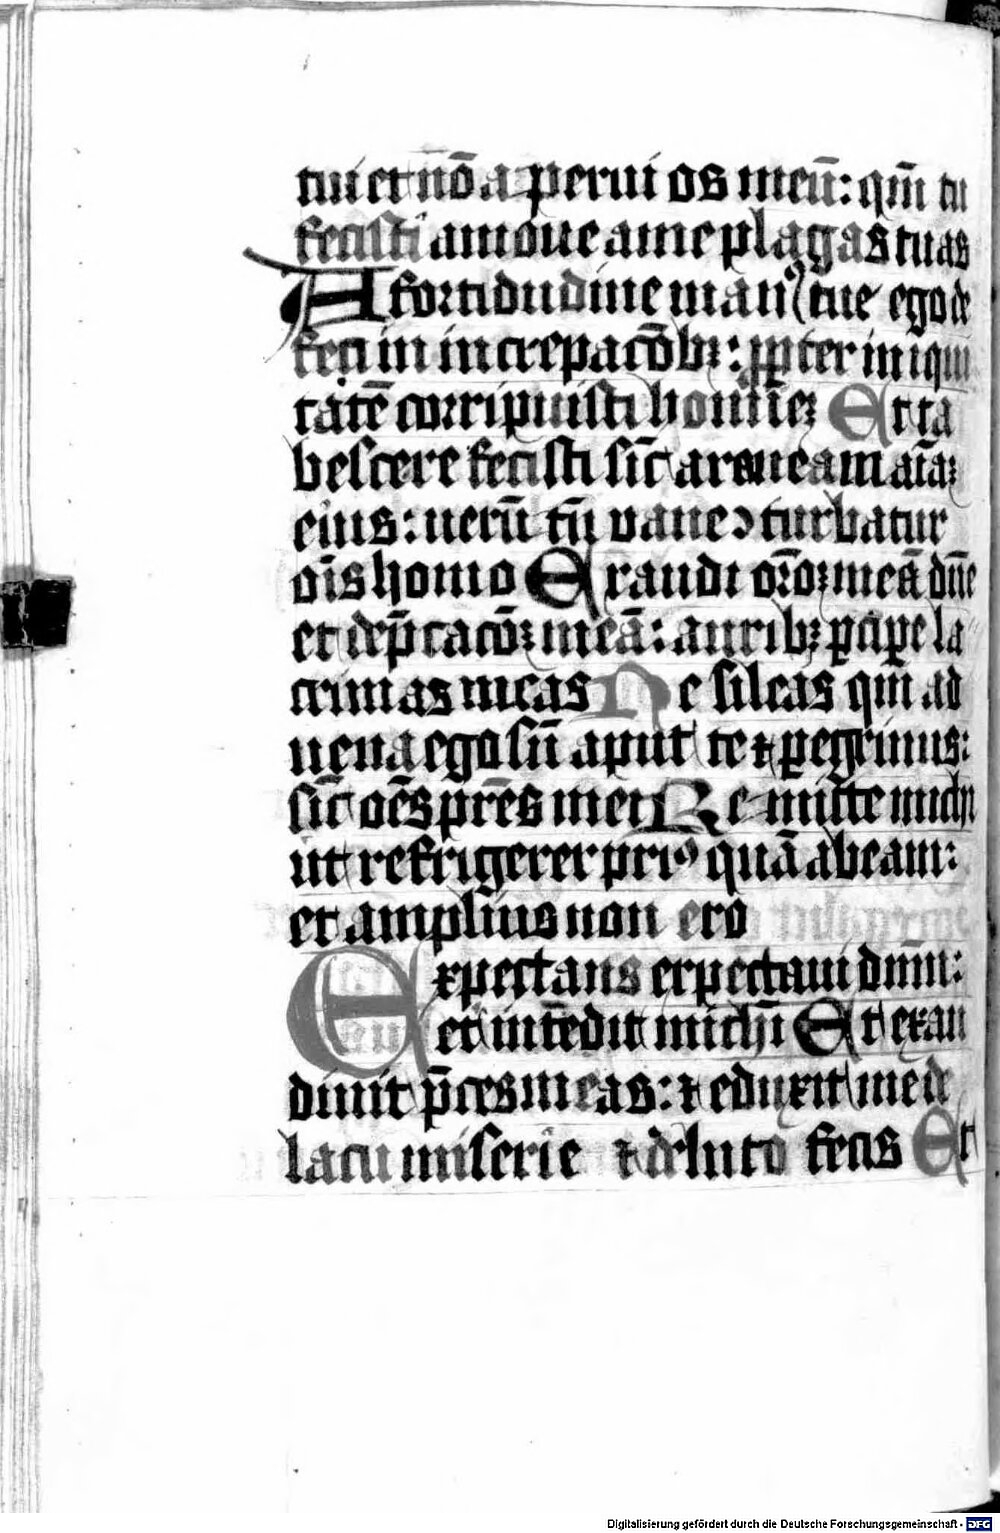 tui et nō aperui os meū: qm̄ tu
fecisti amoue a me plagas tuas
A fortidudine man⁹ tue ego de
feci in increpacōbꝫ: ꝓpter iniqui
tatē corripuisti hoīnēꝫ Et ta
bescere fecisti sic̄ araneam aīaꝫ
eius: uerū tn̄ vane ↄturbatur
oīs homo Exaudi oro̅ꝫ meā dn̄e
et dep̄cacōꝫ meā: auribꝫ ꝑcipe la
crimas meas Ne sileas qm̄ ad
uena ego sū aput te ⁊ ꝑegrinus:
sic̄ oēs pr̄es mei Remitte michi
ut refrigerer pri⁹ quā abeam:
et amplius non ero
Expectans expectaui dnm̄:
et intēdit michi Et exau
diuit p̄ces meas: ⁊ eduxit me de
lacu miserie ⁊ de luto fecis Et
Digitalisierung gefördert durch die Deutsche Forschungsgemeinschaft - DFG